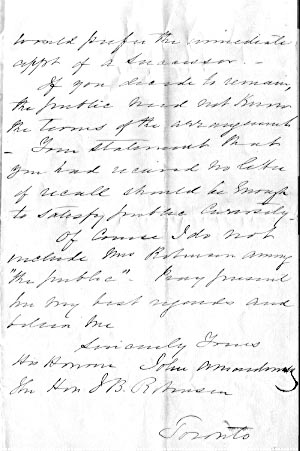 would prefer the immediate
appt of a successor. –
If you decide to remain,
the public need not know
the terms of the arrangement
– Your statement that
you had received no letter
of recall should be enough
to satisfy public curiosity.
Of course I do not
include Mrs Robinson among
"the public". Pray present
her my best regards and
believe me
Sincerely Yours
His Honour John A Macdonald
The Hon J B. Robinson
Toronto